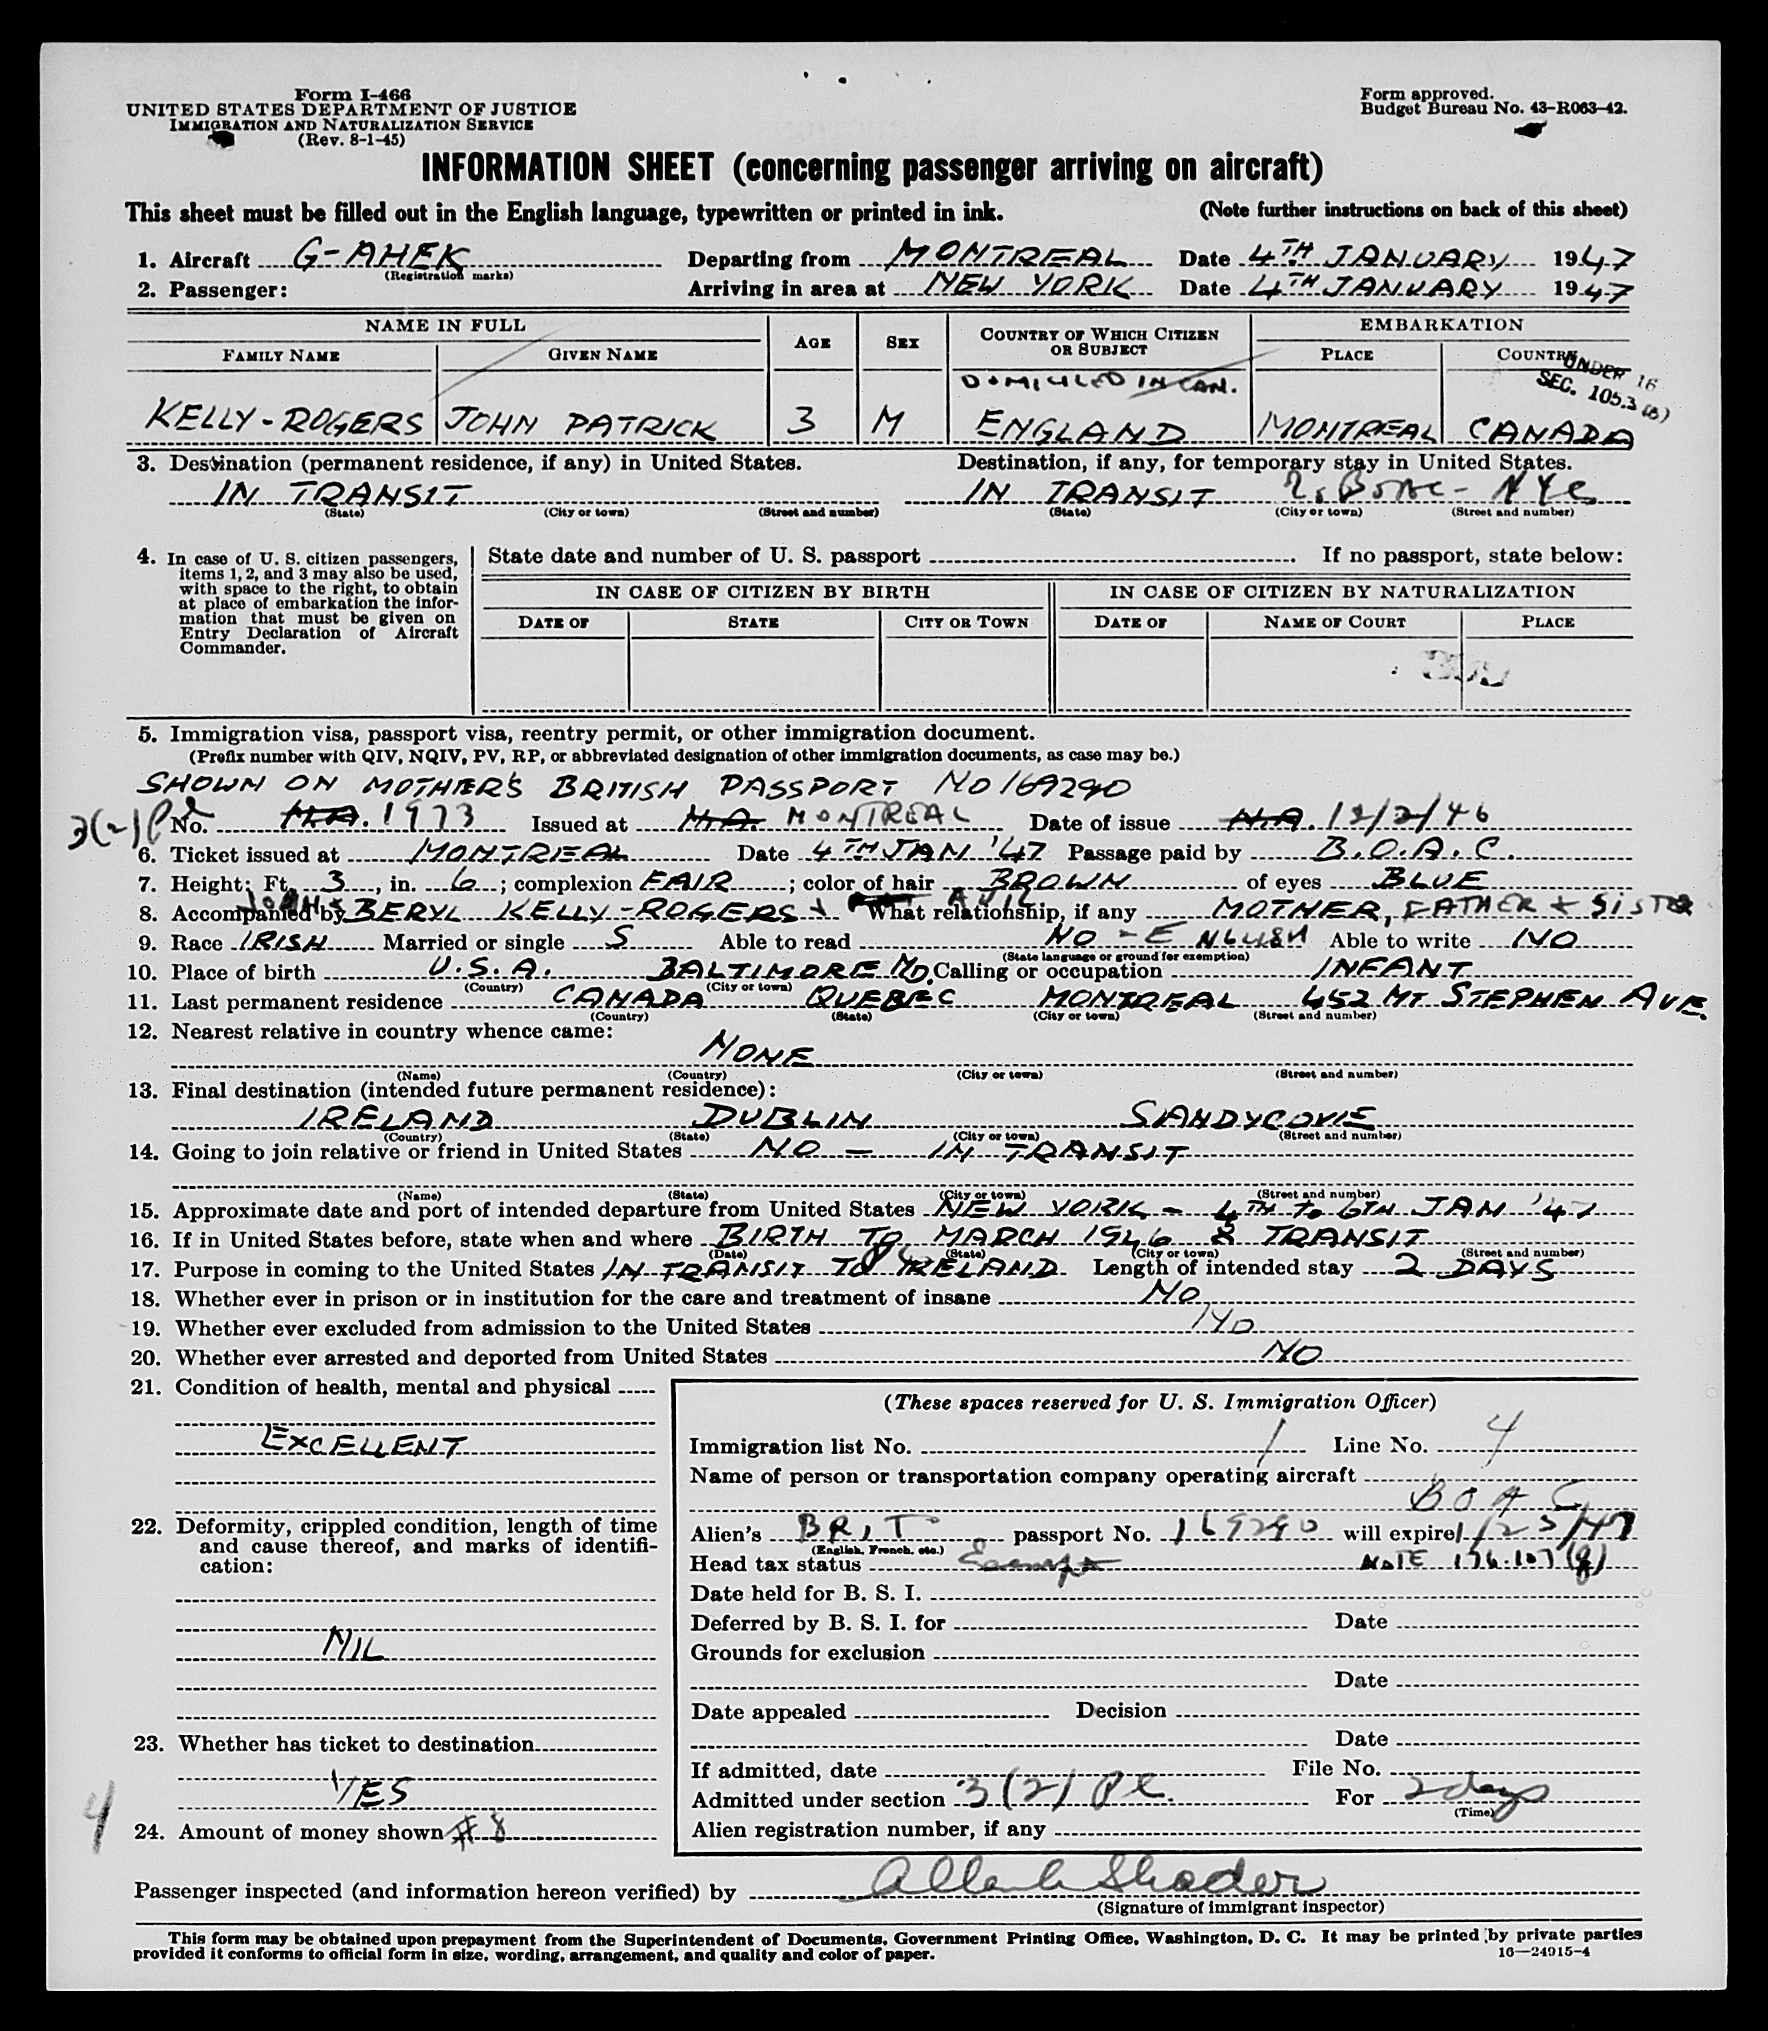 Form I-466
UNITED STATES DEPARTMENT OF JUSTICE
IMMIGRATION AND NATURALIZATION SERVICE
(Rev. 8-1-45)
Form approved.
Budget Bureau No. 43-R063-42.
INFORMATION SHEET (concerning passenger arriving on aircraft)
This sheet must be filled out in the English language, typewritten or printed in ink. (Note further instructions on back of this sheet)
1. Aircraft G-AHEK Departing from MONTREAL Date 4TH JANUARY 1947
(Registration marks)
2. Passenger: Arriving in area at NEW YORK Date 4TH JANUARY 1947
NAME IN FULL AGE SEX COUNTRY OF WHICH CITIZEN OR SUBJECT EMBARKATION
FAMILY NAME GIVEN NAME PLACE COUNTRY
UNDER 16
SEC. 105.3 (B)
DOMICILED IN CAN.
KELLY-ROGERS JOHN PATRICK 3 M ENGLAND MONTREAL CANADA
3. Destination (permanent residence, if any) in United States. Destination, if any, for temporary stay in United States.
IN TRANSIT IN TRANSIT NYC
(State) (City or town) (Street and number) (State) (City or town) (Street and number)
4. In case of U. S. citizen passengers, items 1, 2, and 3 may also be used, with space to the right, to obtain at place of embarkation the information that must be given on Entry Declaration of Aircraft Commander.
State date and number of U. S. passport If no passport, state below:
IN CASE OF CITIZEN BY BIRTH IN CASE OF CITIZEN BY NATURALIZATION
DATE OF STATE CITY OR TOWN DATE OF NAME OF COURT PLACE
5. Immigration visa, passport visa, reentry permit, or other immigration document.
(Prefix number with QIV, NQIV, PV, RP, or abbreviated designation of other immigration documents, as case may be.)
SHOWN ON MOTHER'S BRITISH PASSPORT NO 169290
3(2) PL No. N.A. 1973 Issued at N.A. MONTREAL Date of issue N.A. 12/2/46
6. Ticket issued at MONTREAL Date 4TH JAN '47 Passage paid by B.O.A.C.
7. Height: Ft. 3, in. 6; complexion FAIR; color of hair BROWN of eyes BLUE
8. Accompanied by JOHN & BERYL KELLY-ROGERS & What relationship, if any MOTHER, FATHER & SISTER
9. Race IRISH Married or single S Able to read NO - ENGLISH Able to write NO
(State language or ground for exemption)
10. Place of birth U.S.A. BALTIMORE MD. Calling or occupation INFANT
(Country) (City or town)
11. Last permanent residence CANADA QUEBEC MONTREAL 452 MT STEPHEN AVE.
(Country) (State) (City or town) (Street and number)
12. Nearest relative in country whence came:
NONE
(Name) (Country) (City or town) (Street and number)
13. Final destination (intended future permanent residence):
IRELAND DUBLIN SANDYCOVE
(Country) (State) (City or town) (Street and number)
14. Going to join relative or friend in United States NO - IN TRANSIT
(Name) (State) (City or town) (Street and number)
15. Approximate date and port of intended departure from United States NEW YORK - 4TH TO 6TH JAN '47
16. If in United States before, state when and where BIRTH TO MARCH 1946 & TRANSIT
(Date) (State) (City or town) (Street and number)
17. Purpose in coming to the United States IN TRANSIT TO IRELAND Length of intended stay 2 DAYS
18. Whether ever in prison or in institution for the care and treatment of insane NO
19. Whether ever excluded from admission to the United States NO
20. Whether ever arrested and deported from United States NO
21. Condition of health, mental and physical
EXCELLENT
22. Deformity, crippled condition, length of time and cause thereof, and marks of identification:
NIL
23. Whether has ticket to destination
YES
4
24. Amount of money shown # 8
(These spaces reserved for U. S. Immigration Officer)
Immigration list No. 1 Line No. 4
Name of person or transportation company operating aircraft
BOAC
Alien's BRIT passport No. 169290 will expire 1/25/47
(English, French, etc.)
Head tax status Exempt NOTE 176.107(g)
Date held for B. S. I.
Deferred by B. S. I. for Date
Grounds for exclusion
Date
Date appealed Decision
Date
If admitted, date File No.
Admitted under section 3(2) PL. For 2 days
(Time)
Alien registration number, if any
Passenger inspected (and information hereon verified) by Shader
(Signature of immigrant inspector)
This form may be obtained upon prepayment from the Superintendent of Documents, Government Printing Office, Washington, D. C. It may be printed by private parties
provided it conforms to official form in size, wording, arrangement, and quality and color of paper. 16—24915-4